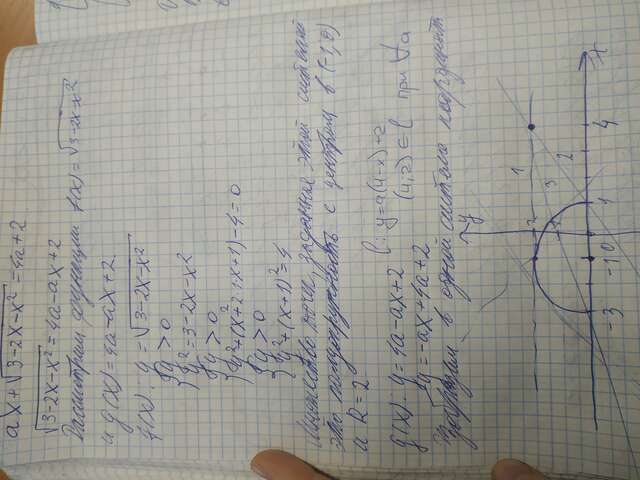 ax+√3-2x-x² = 4a+2
√3-2x-x² = 4a-ax+2
Рассмотрим функции f(x)=√3-2x-x²
и g(x)=4a-ax+2
f(x): y=√3-2x-x²
{ y ⩾ 0
y²=3-2x-x²
{ y ⩾ 0
y²+(x²+2·1·x+1)-4=0
{ y ⩾ 0
y²+(x+1)²=4
Множество точек, заданная этой системой
это полуокружность с центром в (-1,0)
и R=2
g(x): y=4a-ax+2 l: y=a(4-x)+2
y=-ax+4a+2 (4,2)∈l при ∀a
Изобразим в одной системе координат
y
1
2
3
2
-3
-1
0
1
4
x